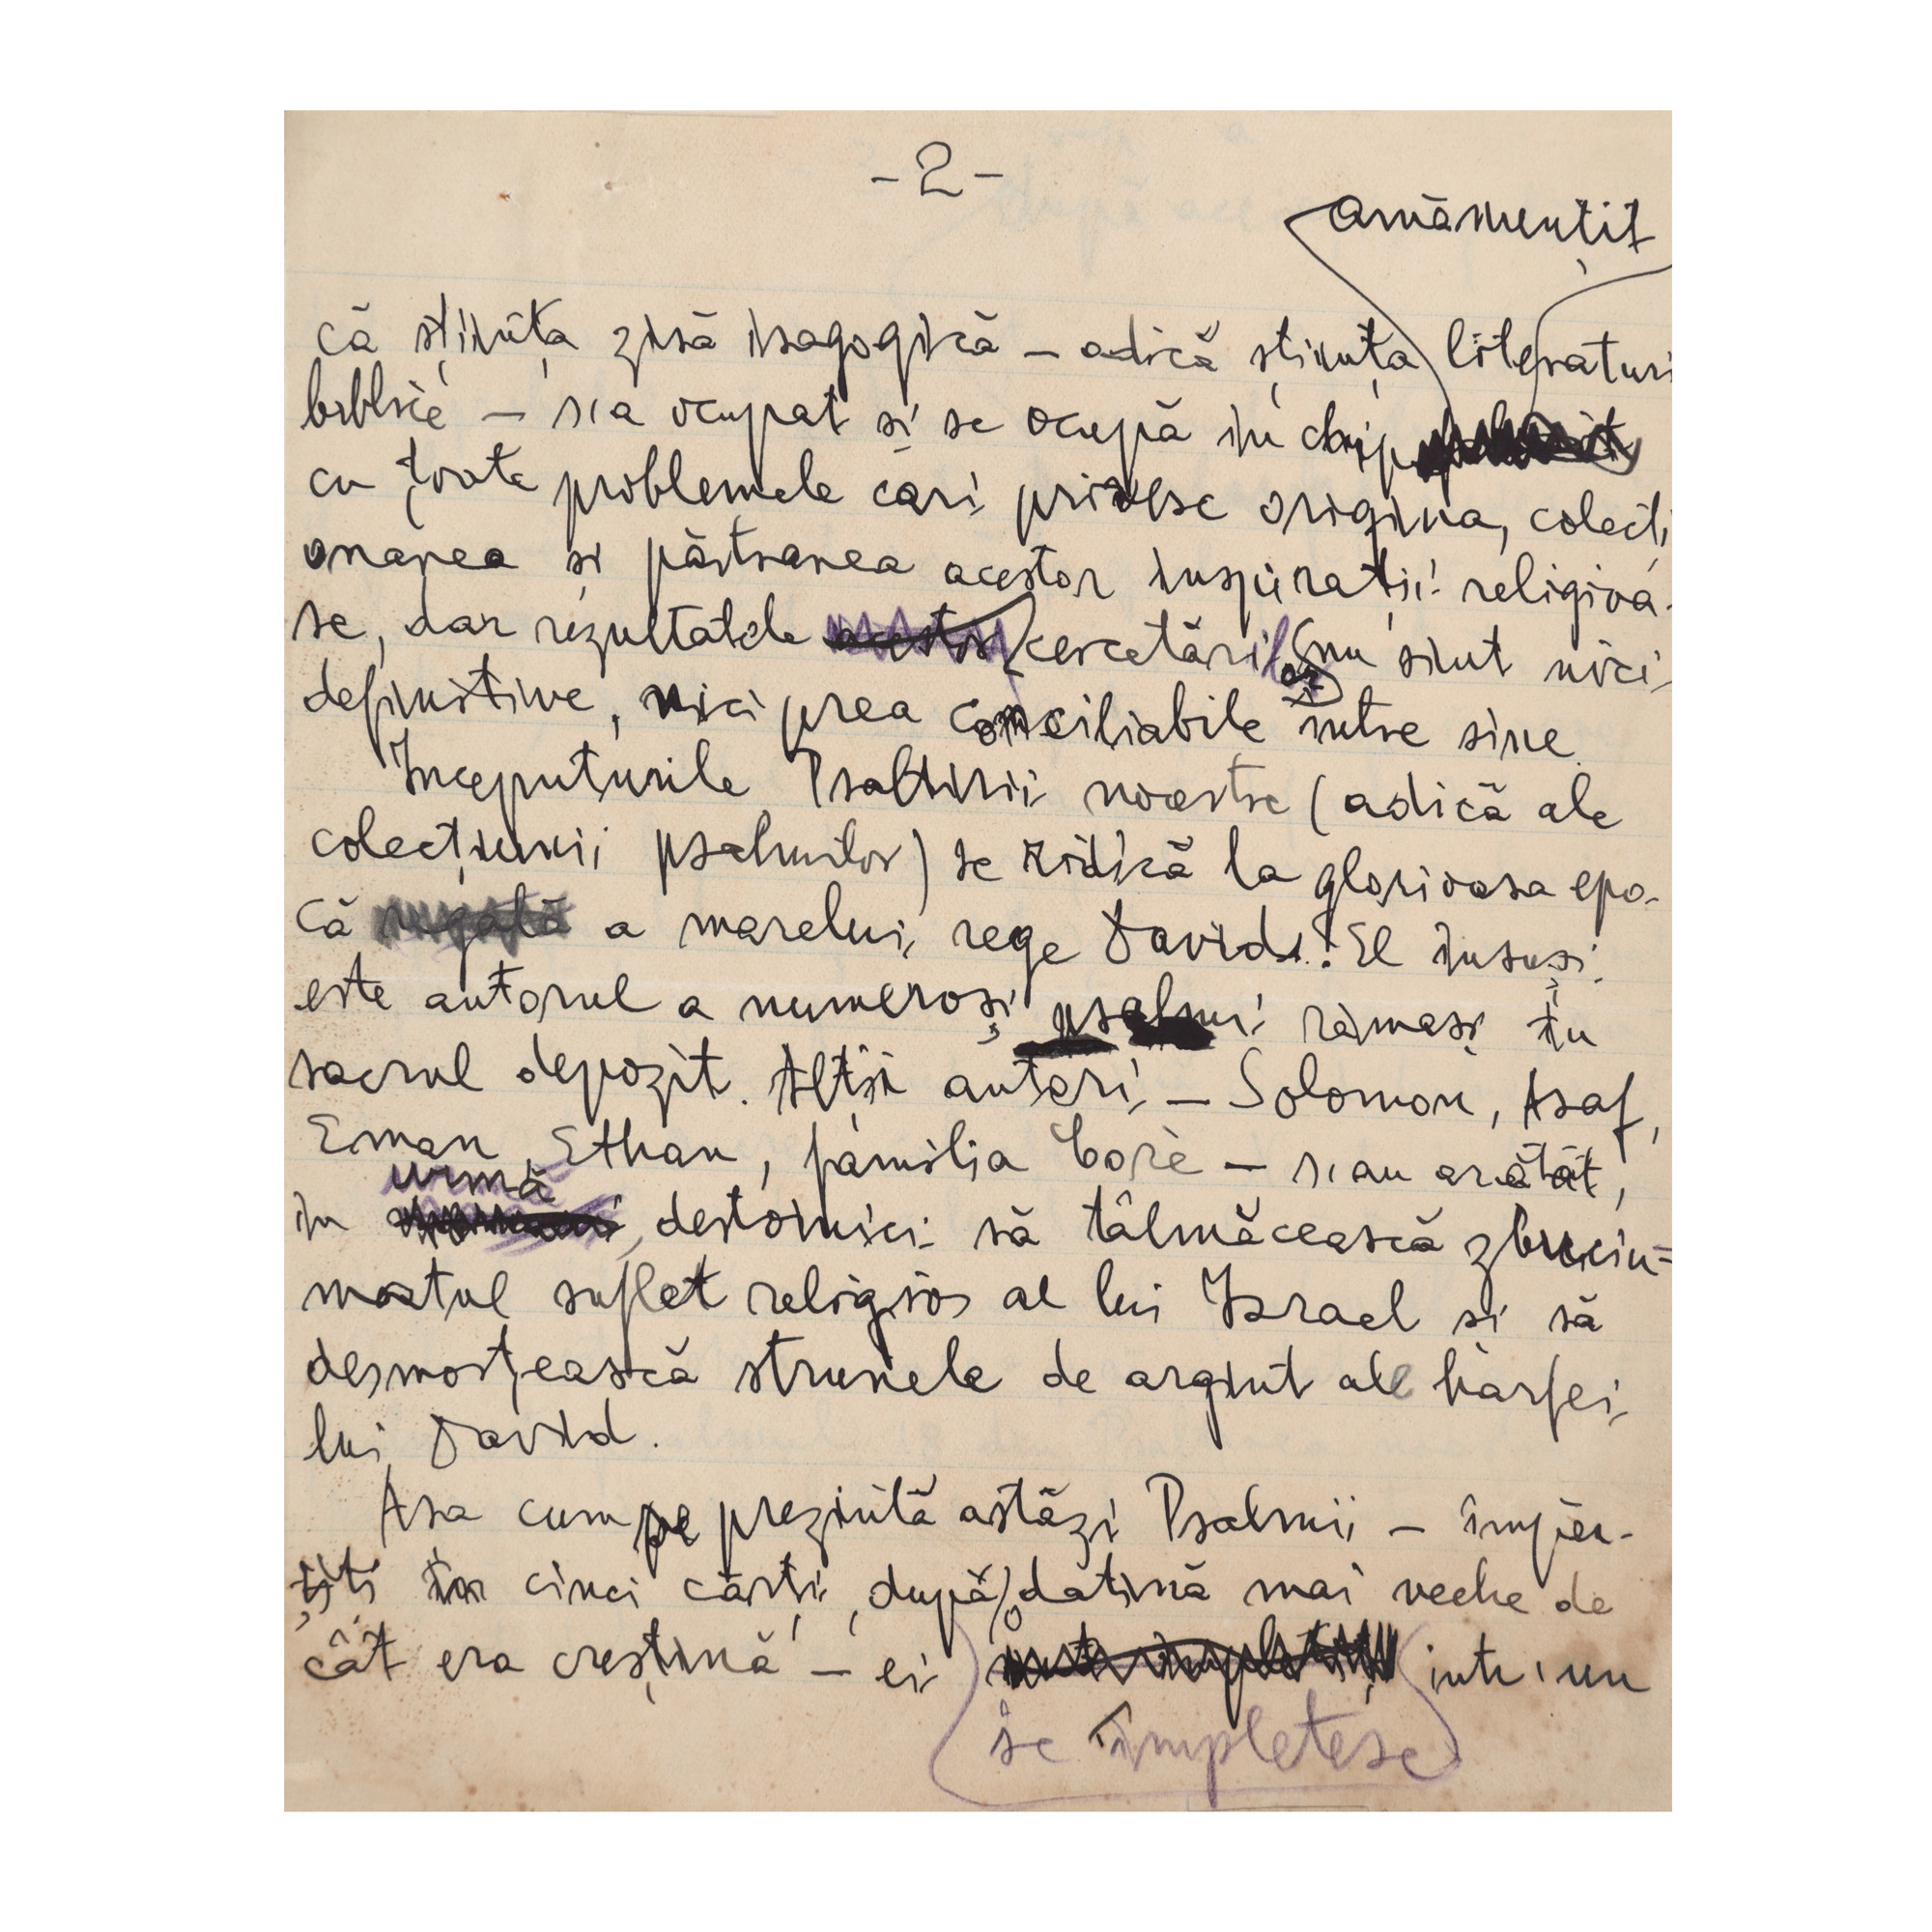 - 2 -
amămențit
că știința zisă isagogică – adică știința literaturi
biblice – s'a ocupat și se ocupă în chip
cu toate problemele cari privesc origina, colecți
onarea și păstrarea acestor inspirații religioa-
se, dar rezultatele acestor cercetărilor nu sînt nici
definitive, nici prea conciliabile între sine.
Începuturile Psaltirii noastre (adică ale
colecțiunii psalmilor) se ridică la glorioasa epo-
că regală a marelui rege David. El însuși
este autorul a numeroși psalmi rămași în
sacrul depozit. Alți autori – Solomon, Asaf,
Eman, Ethan, familia Core – s'au arătat,
urmă
în destoinici să tâlmăcească zbuciu-
matul suflet religios al lui Israel și să
desmorțească strunele de argint ale harfei
lui David.
Asa cum se prezintă astăzi Psalmii – împăr-
țiți în cinci cărți, după o datină mai veche de
cât era creștină – ei într'un
se împletesc